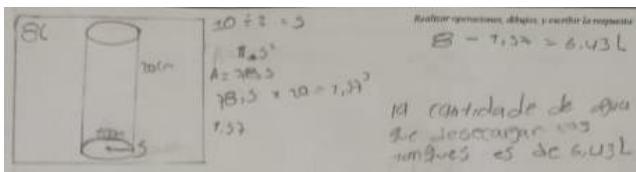 8L
20cm
10cm
5
10 ÷ 2 = 5
π • 5²
A = 78,5
78,5 x 20 = 1,57³
1.57
Realizar operaciones, dibujos, y escribir la respuesta
8 - 1,57 = 6,43 L
la cantidade de agua
que desecargar los
tonques es de 6,43 L